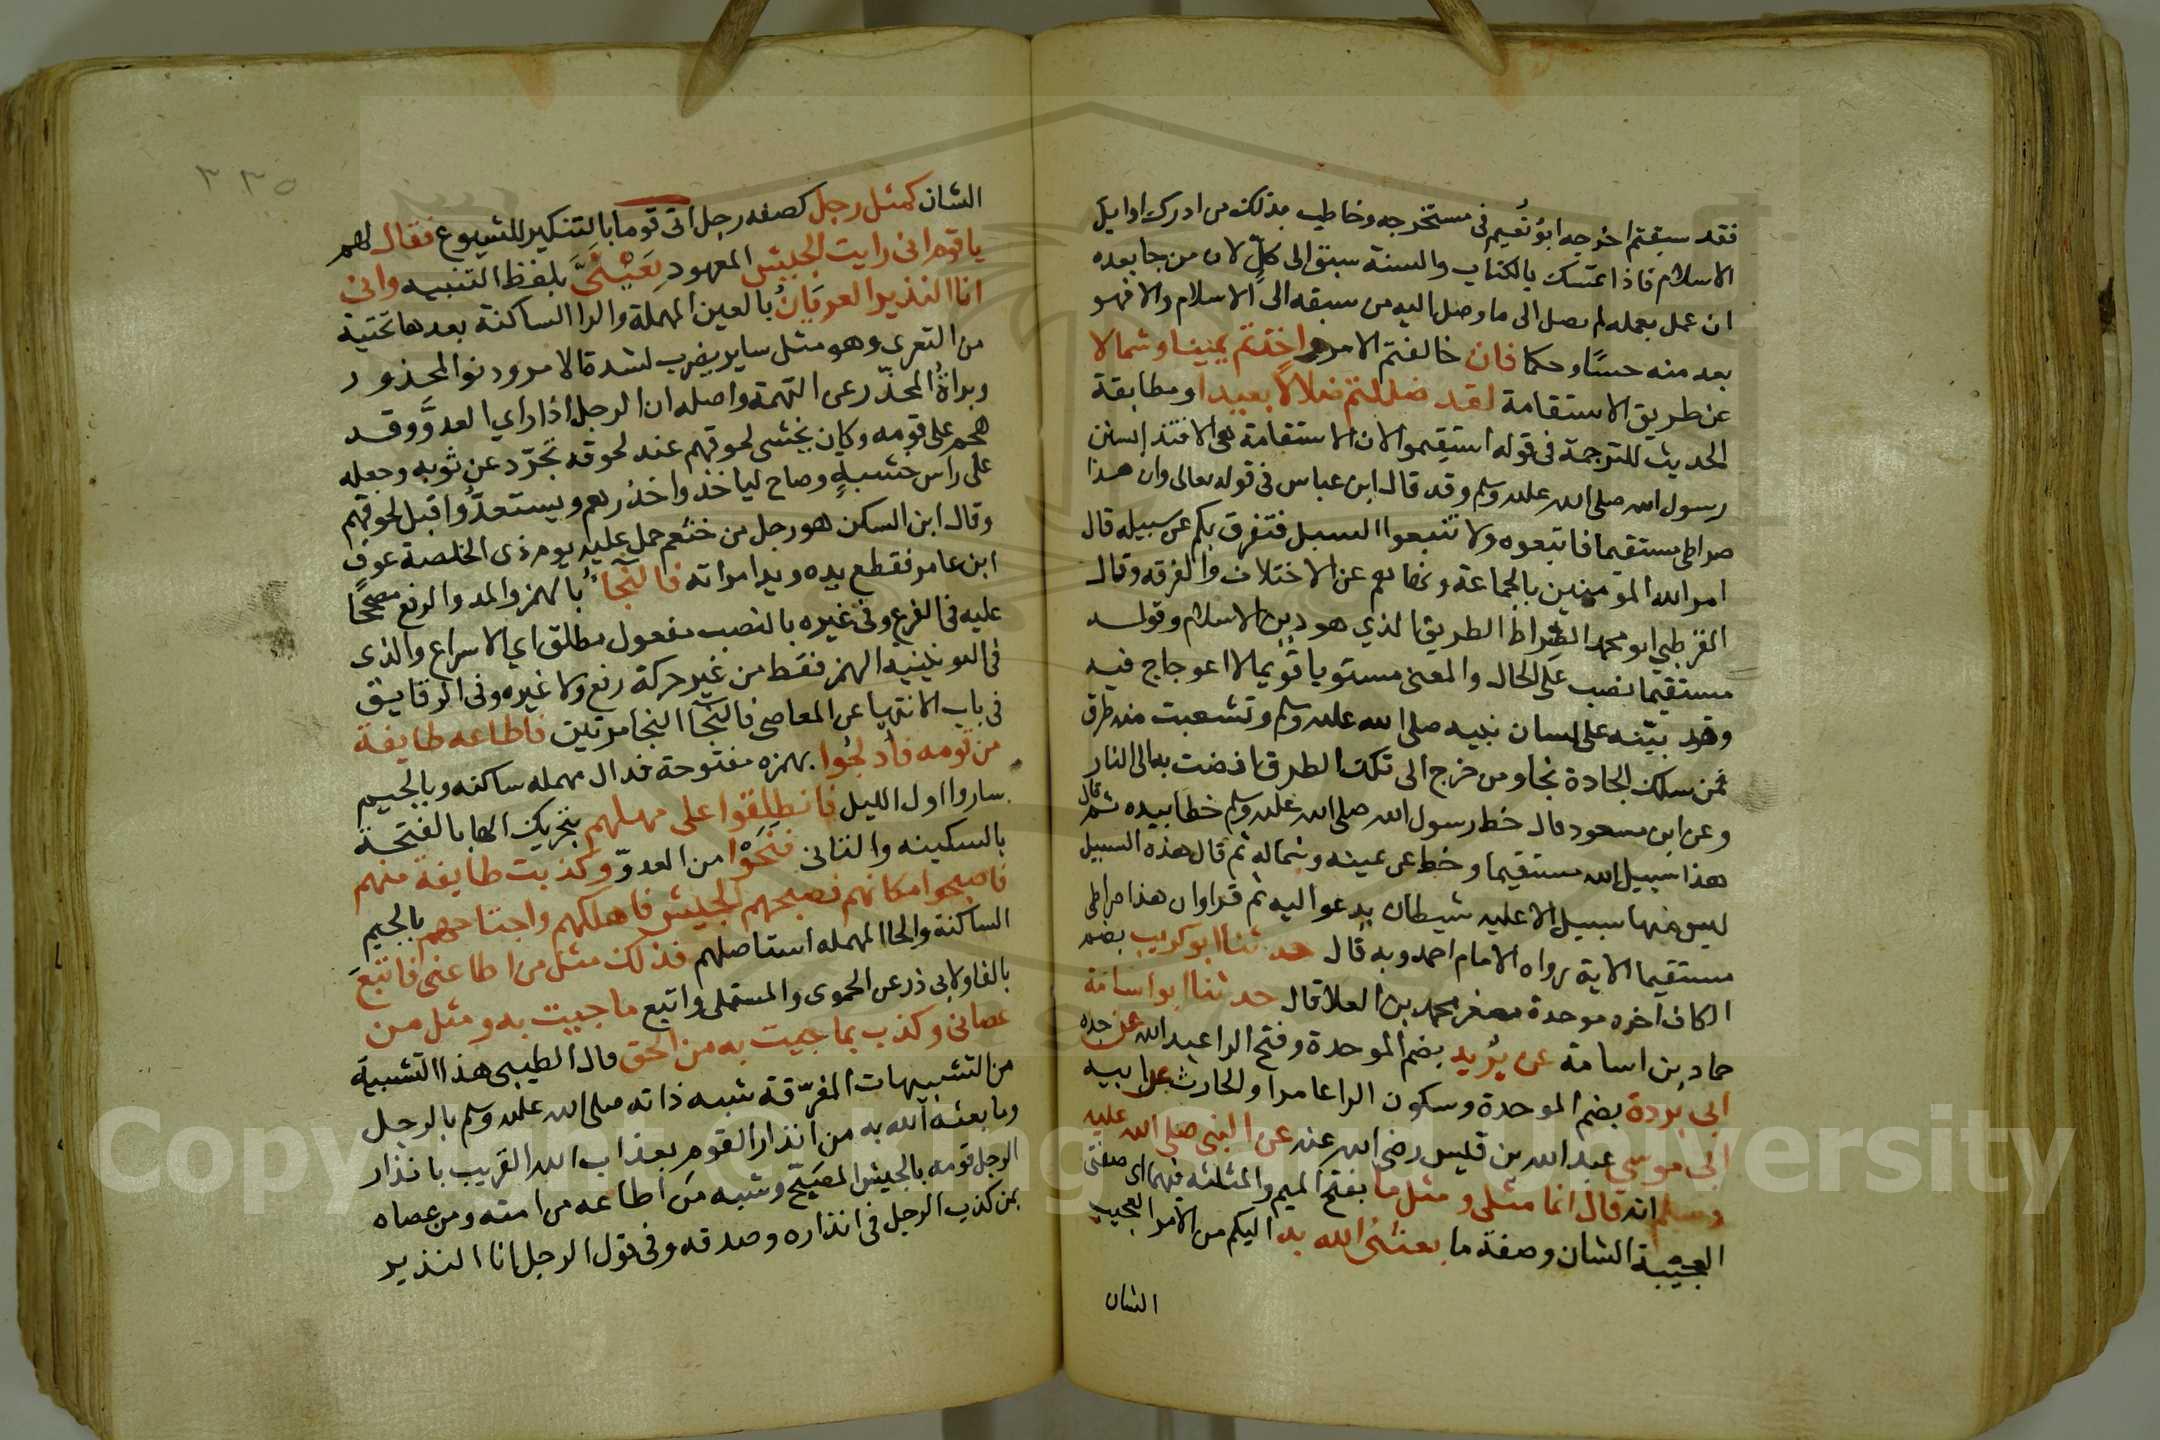 فقد سبقتم اخرجه ابو نُعيم فى مستخرجه وخاطب بذلك من ادرك اوايل
الاسلام فاذا تمسك بالكتاب والسنة سبق الى كلِّ لان من جا بعده
ان عمل بعمله لم يصل الى ما وصل اليه من سبقه الى الاسلام والا فهو
بعد منه حسًا وحكما فان خالفتم الامر واخذتم يمينا وشمالا
عن طريق الاستقامة لقد ضللتم ضلالا بعيدا ومطابقة
الحديث للترجمة فى قوله استقيموا لان الاستقامة هى الاقتدا بسنن
رسول الله صلى الله عليه وسلم وقد قال ابن عباس فى قوله تعالى وان هذا
صراطى مستقيما فاتبعوه ولا تتبعوا السبل فتفرق بكم عن سبيله قال
امر الله المومنين بالجماعة ونهاهم عن الاختلاف والفرقه وقال
القرطبي ابو محمد الصراط الطريق الذي هو دين الاسلام وقوله
مستقيما نصب على الحال والمعنى مستويا قويما لا اعوجاج فيه
وقد بيّنه على لسان نبيه صلى الله عليه وسلم وتشعبت منه طرق
فمن سلك الجادة نجا ومن خرج الى تلك الطرق افضت به الى النار
وعن ابن مسعود قال خط رسول الله صلى الله عليه وسلم خطا بيده ثم قال
هذا سبيل الله مستقيما وخط عن يمينه وشماله ثم قال هذه السبيل
ليس منها سبيل الا عليه شيطان يدعوا اليه ثم قرا وان هذا صراطى
مستقيما الاية رواه الامام احمد وبه قال حدثنا ابو كريب بضم
الكاف اخره موحدة مصغر محمد بن العلا قال حدثنا ابو اسامة
حماد بن اسامة عن بُريد بضم الموحدة وفتح الرا عبد الله عن جده
ابى بردة بضم الموحدة وسكون الرا عامر او الحارث عن ابيه
ابى موسي عبد الله بن قيس رضى الله عنه عن النبى صلى الله عليه
وسلم انه قال انما مثلى ومثل ما بفتح الميم والمثلثه فيهما اى صفتى
العجيبة الشان وصفة ما بعثنىُ الله به اليكم من الامر العجيب
الشان
٣٣٥
الشان كمثل رجل كصفه رجل اتى قوما بالتنكير للشيوع فقال لهم
يا قوم انى رايت الجيش المعهود بِعَيْنَىَّ بلفظ التثنيه وانى
انا النذير العريَانُ بالعين المهملة والرا الساكنة بعدها تحتية
من التعرى وهو مثل ساير يضرب لشدة الامر ودنو المحذور
وبراةُ المحذّر عن التهمة واصله ان الرجل اذا راي العدوَّ وقد
هجم على قومه وكان يخشى لحوقهم عند لحوقه تجرّد عن ثوبه وجعله
على راس خشبةٍ وصاح لياخذوا حذرهم ويستعدُّوا قبل لحوقهم
وقال ابن السكن هو رجل من خثعم حمل عليه يوم ذى الخلصة عوف
ابن عامر فقطع يده ويد امراته فالنَّجاءُ بالهمز والمد والرفع مصححًا
عليه فى الفرع وفى غيره بالنصب مفعول مطلق اي الاسراع والذى
فى اليونينية الهمز فقط من غير حركة رفع ولا غيره وفى الرقايق
فى باب الانتها عن المعاصى فالنّجآ النجا مرتين فاطاعه طايفة
من قومه فأدلجُوا بهمزه مفتوحة فدال مهمله ساكنه وبالجيم
ساروا اول الليل فانطلقوا على مهلهم بتحريك الها بالفتحة
بالسكينه والتانى فَنَجَوْا من العدوّ وكذبت طايفة منهم
فاصبحوا مكانهم فصبحهم الجيش فاهلكهم واجتاحهم بالجيم
الساكنة والحا المهمله استاصلهم فذلك مثل من اطاعنى فاتبعَ
بالفا ولابى ذر عن الحموى والمستملى واتبع ما جيت به ومثل من
عصانى وكذب بما جيت به من الحق قال الطيبى هذا التشبيه
من التشبيهات المفرّقة شبه ذاته صلى الله عليه وسلم بالرجل
وما بعثه الله به من انذار القوم بعذاب الله القريب بانذار
الرجل قومه بالجيش المصَبّح وشبه من اطاعه من امته ومن عصاه
بمن كذب الرجل فى انذاره وصدقه وفى قول الرجل انا النذير
Copyright © King Saud University